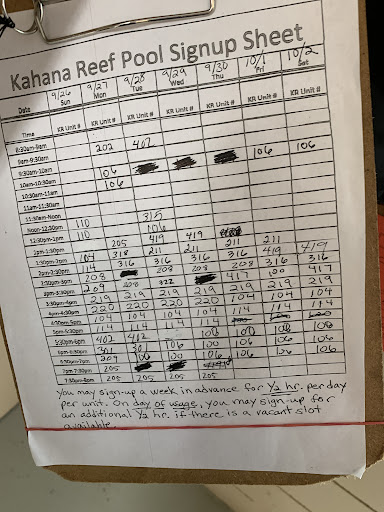 Kahana Reef Pool Signup Sheet
Date 9/26 Sun 9/27 Mon 9/28 Tue 9/29 Wed 9/30 Thu 10/1 Fri 10/2 Sat
Time KR Unit # KR Unit # KR Unit # KR Unit # KR Unit # KR Unit # KR Unit #
8:30am-9am 202 402
9am-9:30am 106 106
9:30am-10am 106
10am-10:30am 106
10:30am-11am
11am-11:30am
11:30am-Noon 315
Noon-12:30pm 110 106
12:30pm-1pm 110 419 419
1pm-1:30pm 205 211 211 211 211
1:30pm-2pm 104 318 316 316 316 419 419
2pm-2:30pm 114 316 208 208 208 316 316
2:30pm-3pm 208 417 100 417
3pm-3:30pm 209 208 322 219 219 219
3:30pm-4pm 219 219 219 219 104 104 104
4pm-4:30pm 220 220 220 220 114 114
4:30pm-5pm 104 104 104 104
5pm-5:30pm 114 114 114 100 106
5:30pm-6pm 402 412 100 106 106 106
6pm-6:30pm 106
6:30pm-7pm 209 100 106 106 106
7pm-7:30pm 205 205
7:30pm-8pm 205 205 205 205
You may sign-up a week in advance for ½ hr. per day
per unit. On day of usage, you may sign-up for
an additional ½ hr. if there is a vacant slot
available.